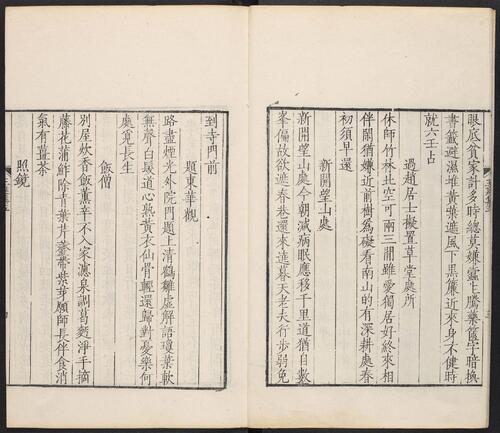 眼底貧家計多時總莫嫌蠹生騰藥篋字暗換
書籤避濕堆黃葉遮風下黑簾近來身不健時
就六壬占
過趙居士擬置草堂處所
休師竹林北空可兩三間雖愛獨居好終來相
伴閑猶嫌近前樹爲礙看南山的有深耕處春
初須早還
新開望山處
新開望山處今朝減病眼應移千里道猶自數
峯偏故欲遮春巷還來遶暮天老夫行步弱免
到寺門前
題東華觀
路盡煙光外院門題上清鶴雛虛解語瓊葉軟
無聲白髮道心熟黃衣仙骨輕還歸對憂樂何
處覓長生
飯僧
別屋炊香飯薰辛不入家濾泉調葛麵淨手摘
藤花蒲鮓除青葉芹虀帶紫芽願師長伴食消
氣有薑茶
照鏡